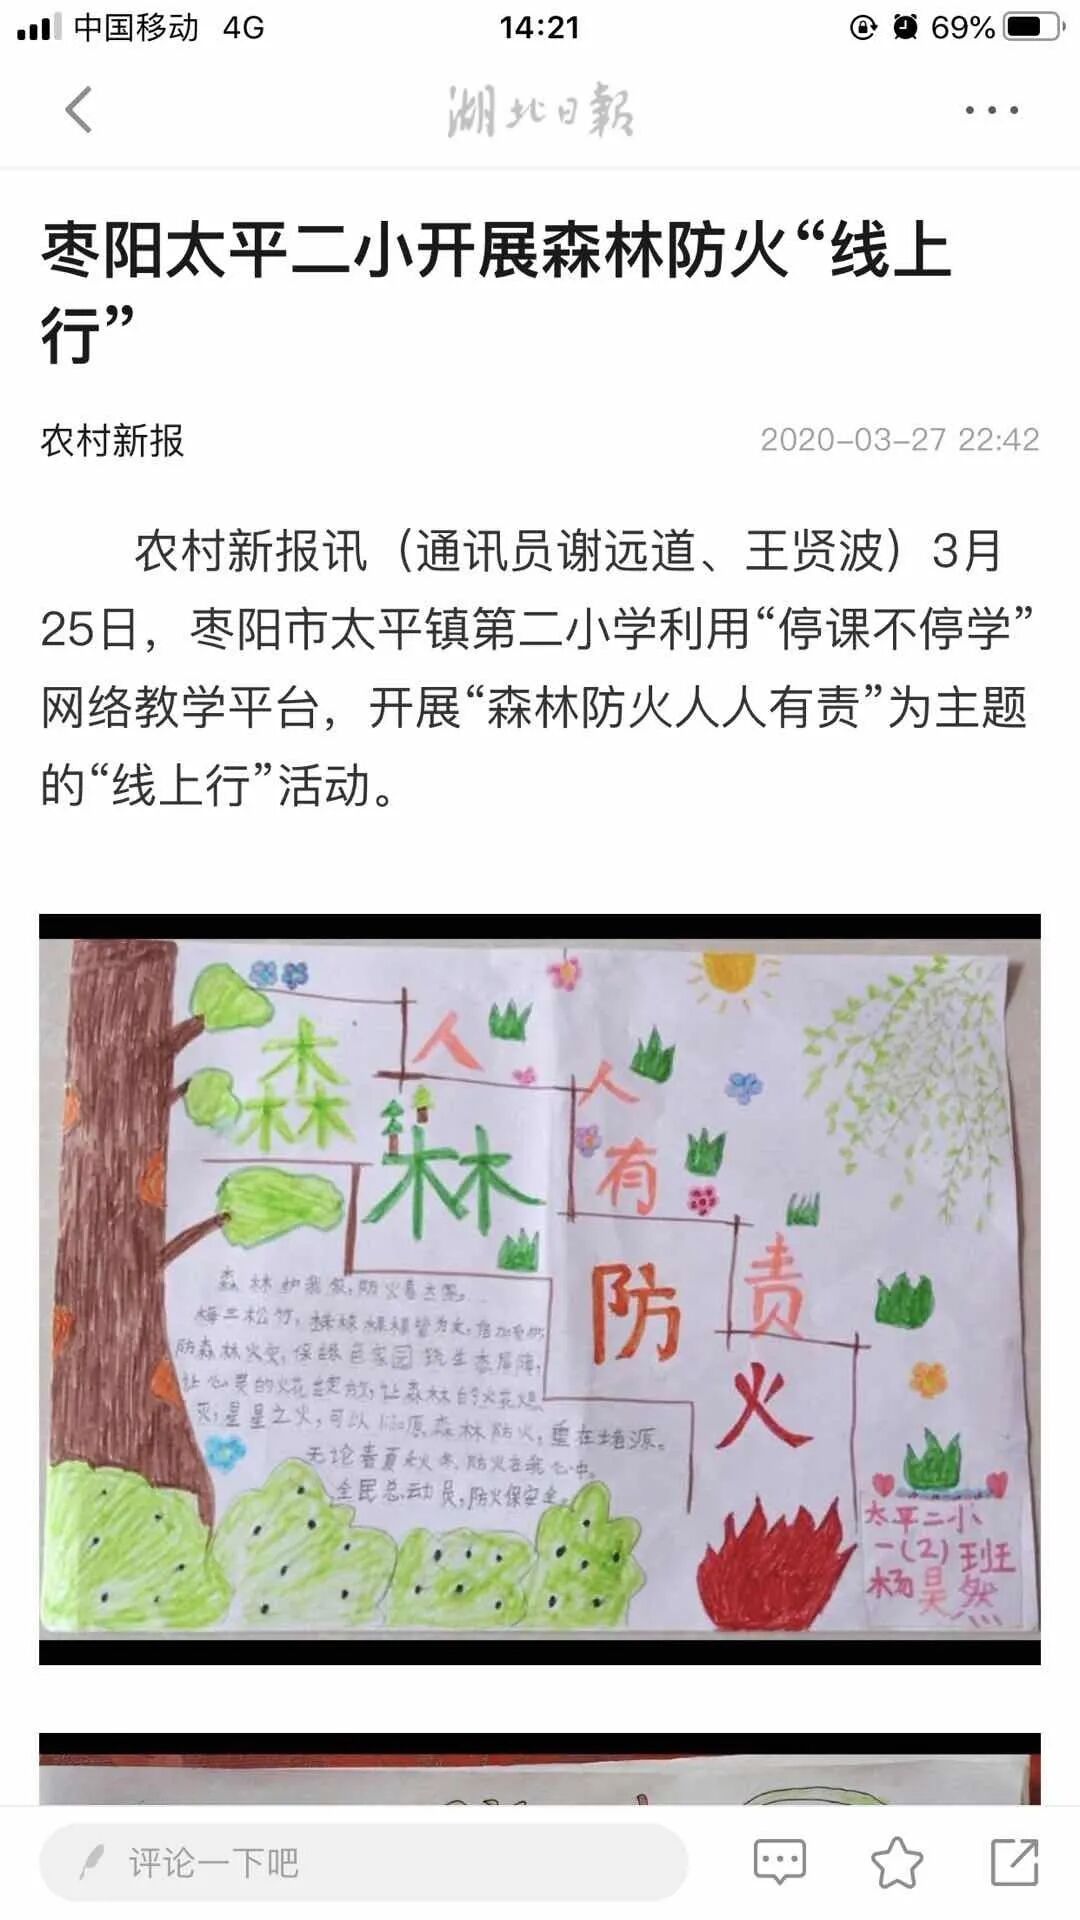 中国移动 4G 14:21 69%
湖北日報
枣阳太平二小开展森林防火“线上
行”
农村新报 2020-03-27 22:42
农村新报讯（通讯员谢远道、王贤波）3月
25日，枣阳市太平镇第二小学利用“停课不停学”
网络教学平台，开展“森林防火人人有责”为主题
的“线上行”活动。
森林防火
人人有责
森林
防火
梅兰松竹，
防森林火灾，保绿色家园
让心灵的火花绽放，让森林的火花熄
灭，星星之火，可以燎原，森林防火，重在堵源。
无论春夏秋冬，防火在我心中。
全民总动员，防火保安全。
太平二小
一（2）班
杨昊然
评论一下吧